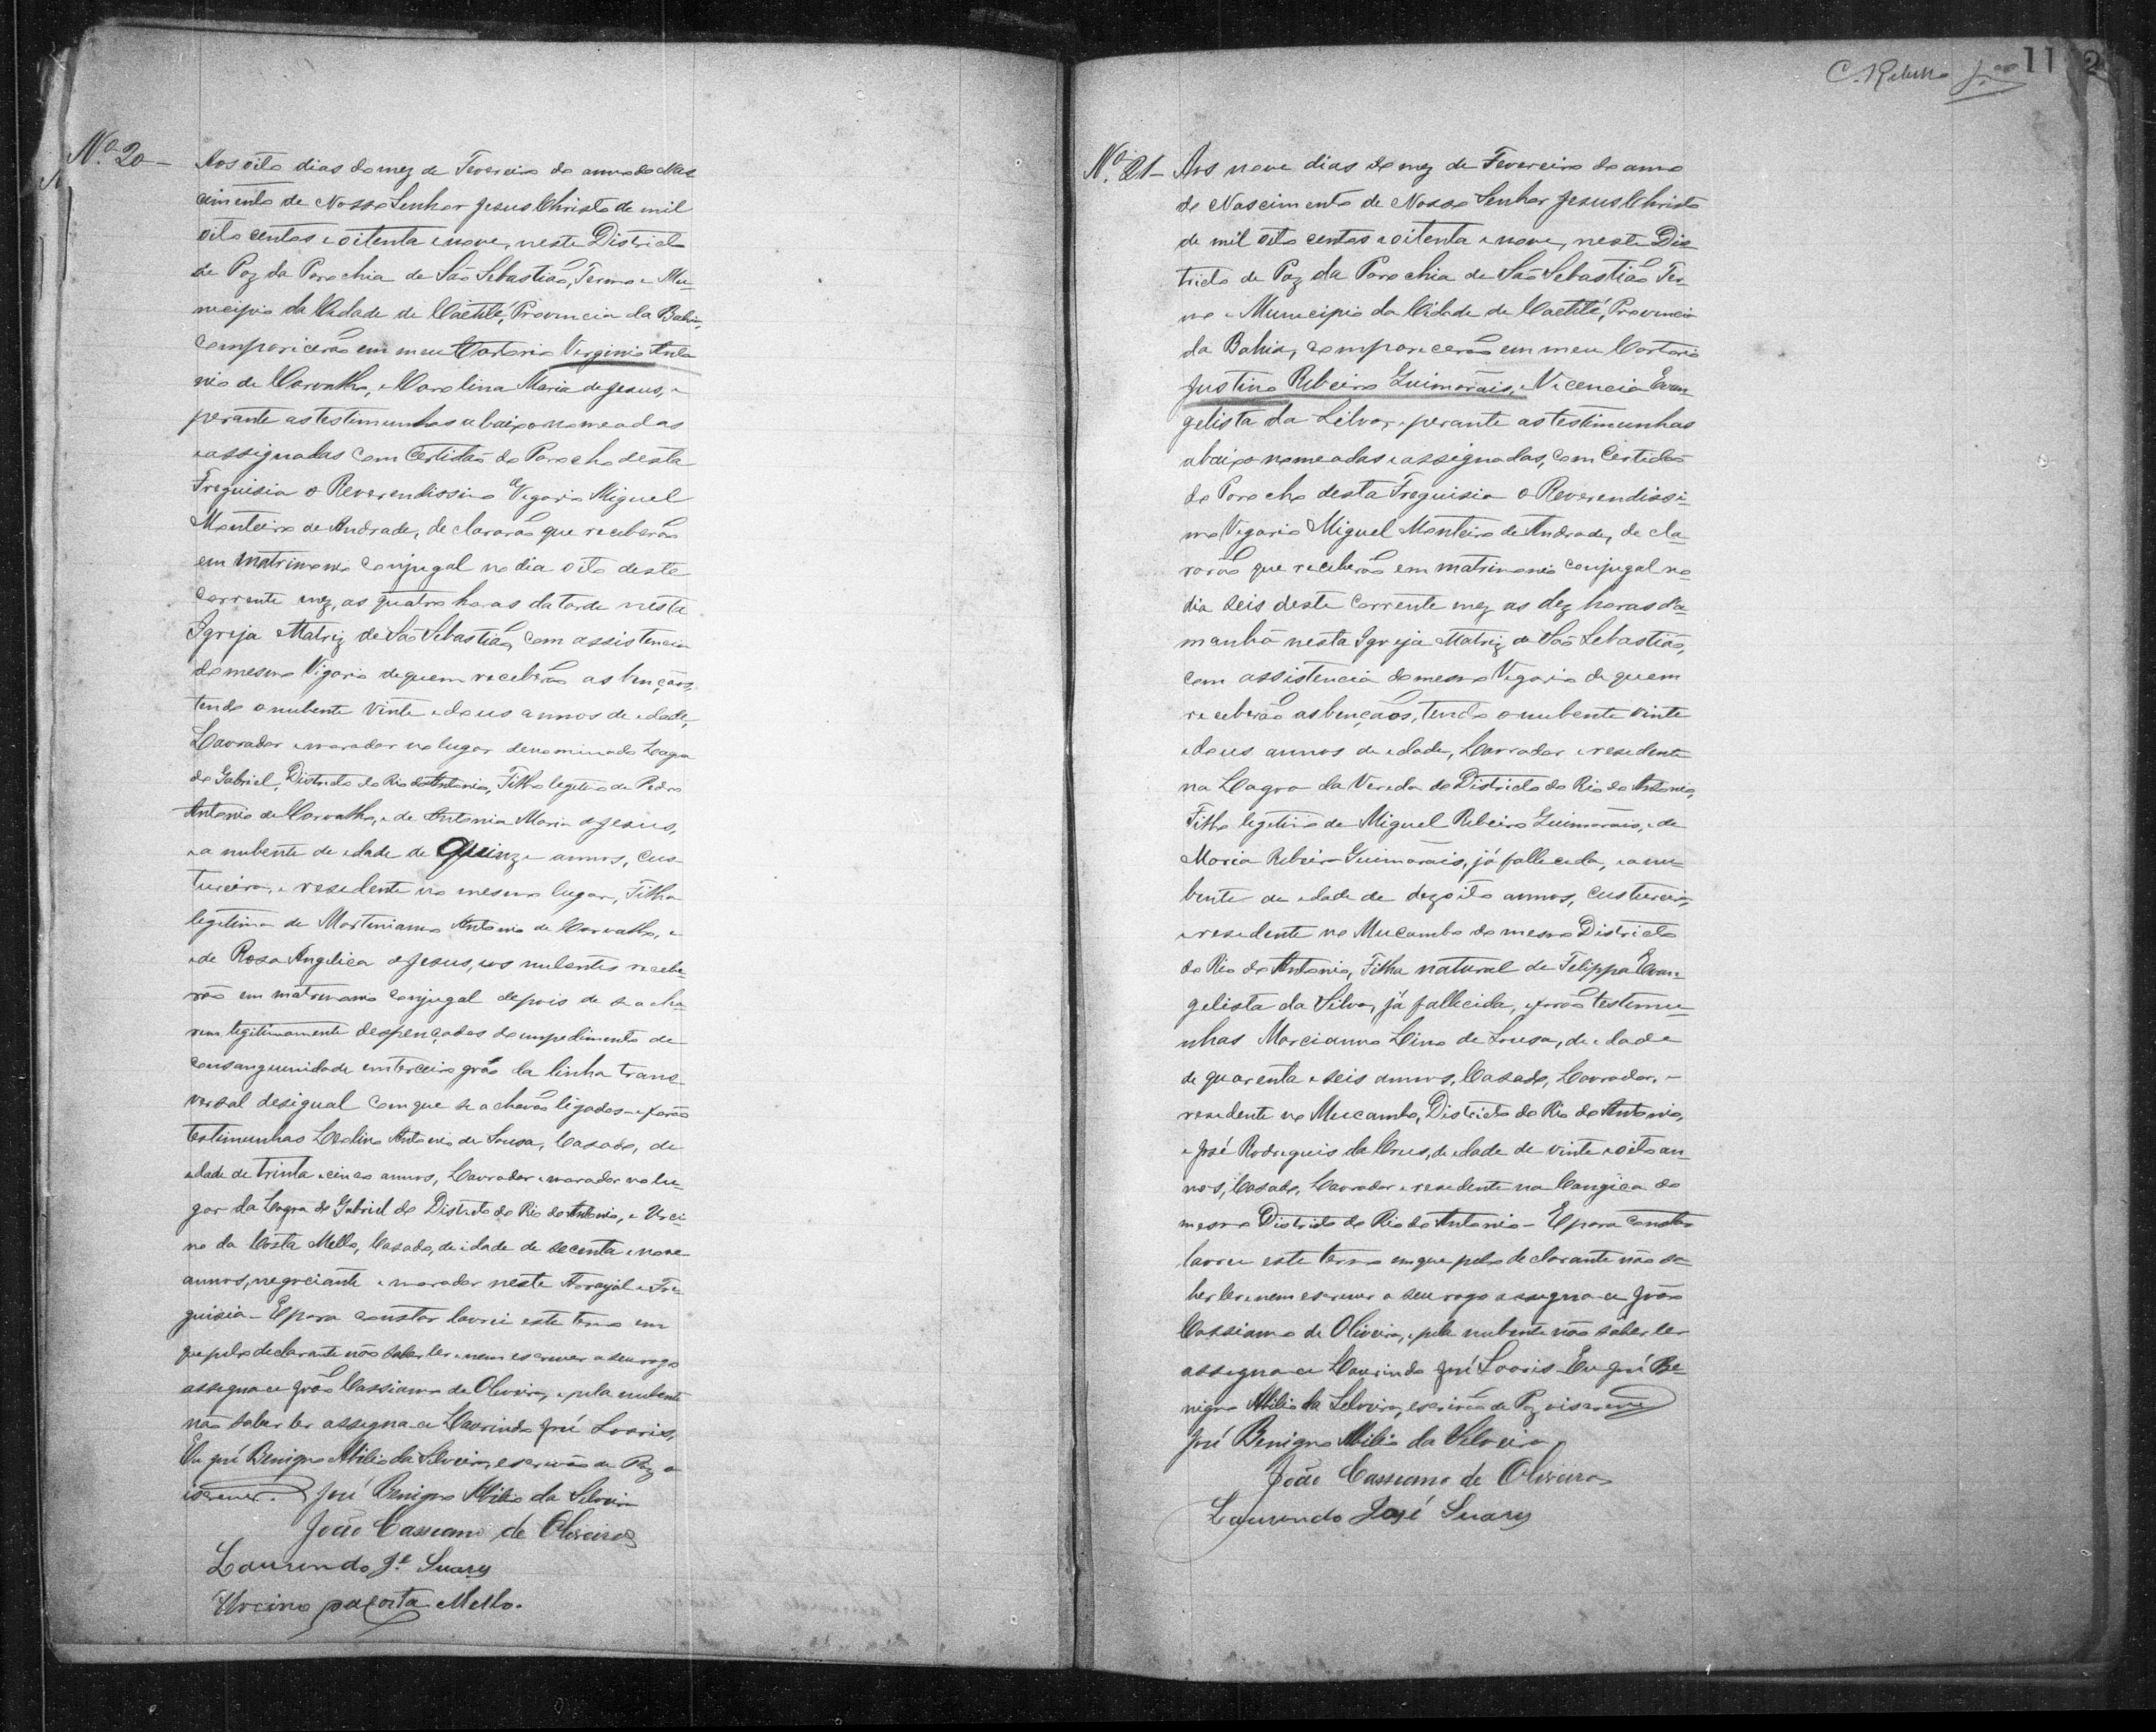 Nº 20 - Aos oito dias do mez de Fevereiro do anno do Nas
cimento de Nosso Senhor Jesus Christo de mil
oito centos e oitenta e nove, neste Districto
de Paz da Parochia de São Sebastião, Termo e Mu-
nicipio da Cidade de Caetité, Provincia da Bahia,
comparicerão em meu Cartorio Verginio Anto
nio de Carvalho, e Carolina Maria de Jesus, e
perante as testimunhas abaixo nomeadas
e assignadas com Certidão do Parocho desta
Freguisia o Reverendissimo Vegario Miguel
Monteiro de Andrade, declararão que receberão
em matrimonio conjugal no dia oito deste
corrente mez, as quatro horas da tarde nesta
Igreja Matriz de São Sebastião, com assistencia
do mesmo Vigario de quem receberão as bençãos,
tendo o nubente vinte e dous annos de edade,
Lavrador e morador no lugar denominado Lagoa
do Gabriel, Districto do Rio do Antonio, Filho legitimo de Pedro
Antonio de Carvalho, e de Antonia Maria de Jesus,
e a nubente de edade de Quinze annos, cus-
tureira, e resedente no mesmo lugar, Filha
legitima de Martiniano Antonio de Carvalho, e
de Rosa Angelica de Jesus, e os nubentes recebe-
rão em matrimonio conjugal depois de se acha-
rem legitimamente despençados do impedimento de
consanguinidade em terceiro gráo da linha trans-
versal desigual com que se achavão ligados e forão
testimunhas Antonio de Sousa, Casado, de
edade de trinta e cinco annos, Lavrador e morador no lu-
gar da Lagoa do Gabriel do Districto do Rio do Antonio, e Urci-
no da Costa Mello, Casado, de idade de secenta e nove
annos, negociante e morador neste Arraial e Fre
guisia - E para constar lavrei este termo em
que pelo declarante não saber ler e nem escrever a seu rogo
assigna a João Cassiano de Oliveira, e pela nubente
não saber ler assigna a Laurindo José Soaris,
Eu José Benigno Abilio da Silveira, escrivão de Paz o
iscrever. José Benigno Abilio da Silveira
João Cassiano de Oliveira
Laurindo Je. Suares
Urcino da Costa Mello.
11 2
Nº 21 - Aos nove dias do mez de Fevereiro do anno
do Nascimento de Nosso Senhor Jesus Christo
de mil oito centos e oitenta e nove, neste Dis
tricto de Paz da Parochia de São Sebastião Ter-
mo e Municipio da Cidade de Caetité, Provincia
da Bahia, comparicerão em meu Cartorio
Justino Ribeiro Guimarais, e Vicencia Evan-
gelista da Silva, e perante as testimunhas
abaixo nomeadas e assignadas, com Certidão
do Parocho desta Freguisia o Reverendissi-
mo Vegario Miguel Monteiro de Andrade, decla-
rarão que receberão em matrimonio conjugal no
dia seis deste corrente mez as dez horas da
manhã nesta Igreja Matriz de São Sebastião,
com assistencia do mesmo Vegario de quem
receberão as bençãos, tendo o nubente vinte
e dous annos de edade, Lavrador e resedente
na Lagoa da Vereda do Districto do Rio do Antonio,
Filho legitimo de Miguel Ribeiro Guimarais, e de
Maria Ribeiro Guimarais, já fallecida, e a nu-
bente de edade de dezoito annos, custureira,
e resedente no Mucambo do mesmo Districto
do Rio do Antonio, Filha natural de Felippa Evan-
gelista da Silva, já fallicida, e forão testimu-
nhas Marcianno Lino de Sousa, de edade
de quarenta e seis annos, Casado, Lavrador, e
resedente no Mucambo, Districto do Rio do Antonio,
e José Rodreguis da Crus, de edade de vinte e oito an-
nos, Casado, Lavrador e resedente na Cangica do
mesmo Districto do Rio do Antonio - E para constar
lavrei este termo em que pelo declarante não sa-
ber ler e nem escrever a seu rogo assigna a João
Cassiano de Oliveira, e pela nubente não saber ler
assigna a Laurindo José Soaris - Eu José Be-
nigno Abilio da Silveira, escrivão de Paz o iscrevi
José Benigno Abilio da Silveira
João Cassiano de Oliveira
Laurindo José Suares